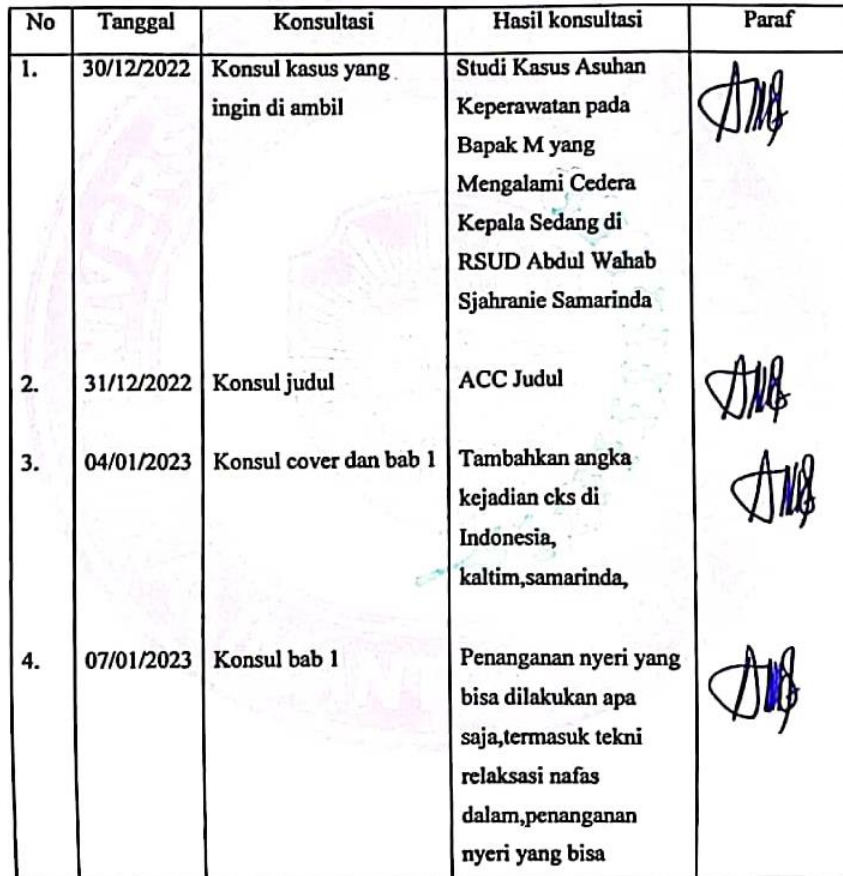 No Tanggal Konsultasi Hasil konsultasi Paraf
1. 30/12/2022 Konsul kasus yang Studi Kasus Asuhan
ingin di ambil Keperawatan pada
Bapak M yang
Mengalami Cedera
Kepala Sedang di
RSUD Abdul Wahab
Sjahranie Samarinda
2. 31/12/2022 Konsul judul ACC Judul
3. 04/01/2023 Konsul cover dan bab 1 Tambahkan angka
kejadian cks di
Indonesia,
kaltim,samarinda,
4. 07/01/2023 Konsul bab 1 Penanganan nyeri yang
bisa dilakukan apa
saja,termasuk tekni
relaksasi nafas
dalam,penanganan
nyeri yang bisa